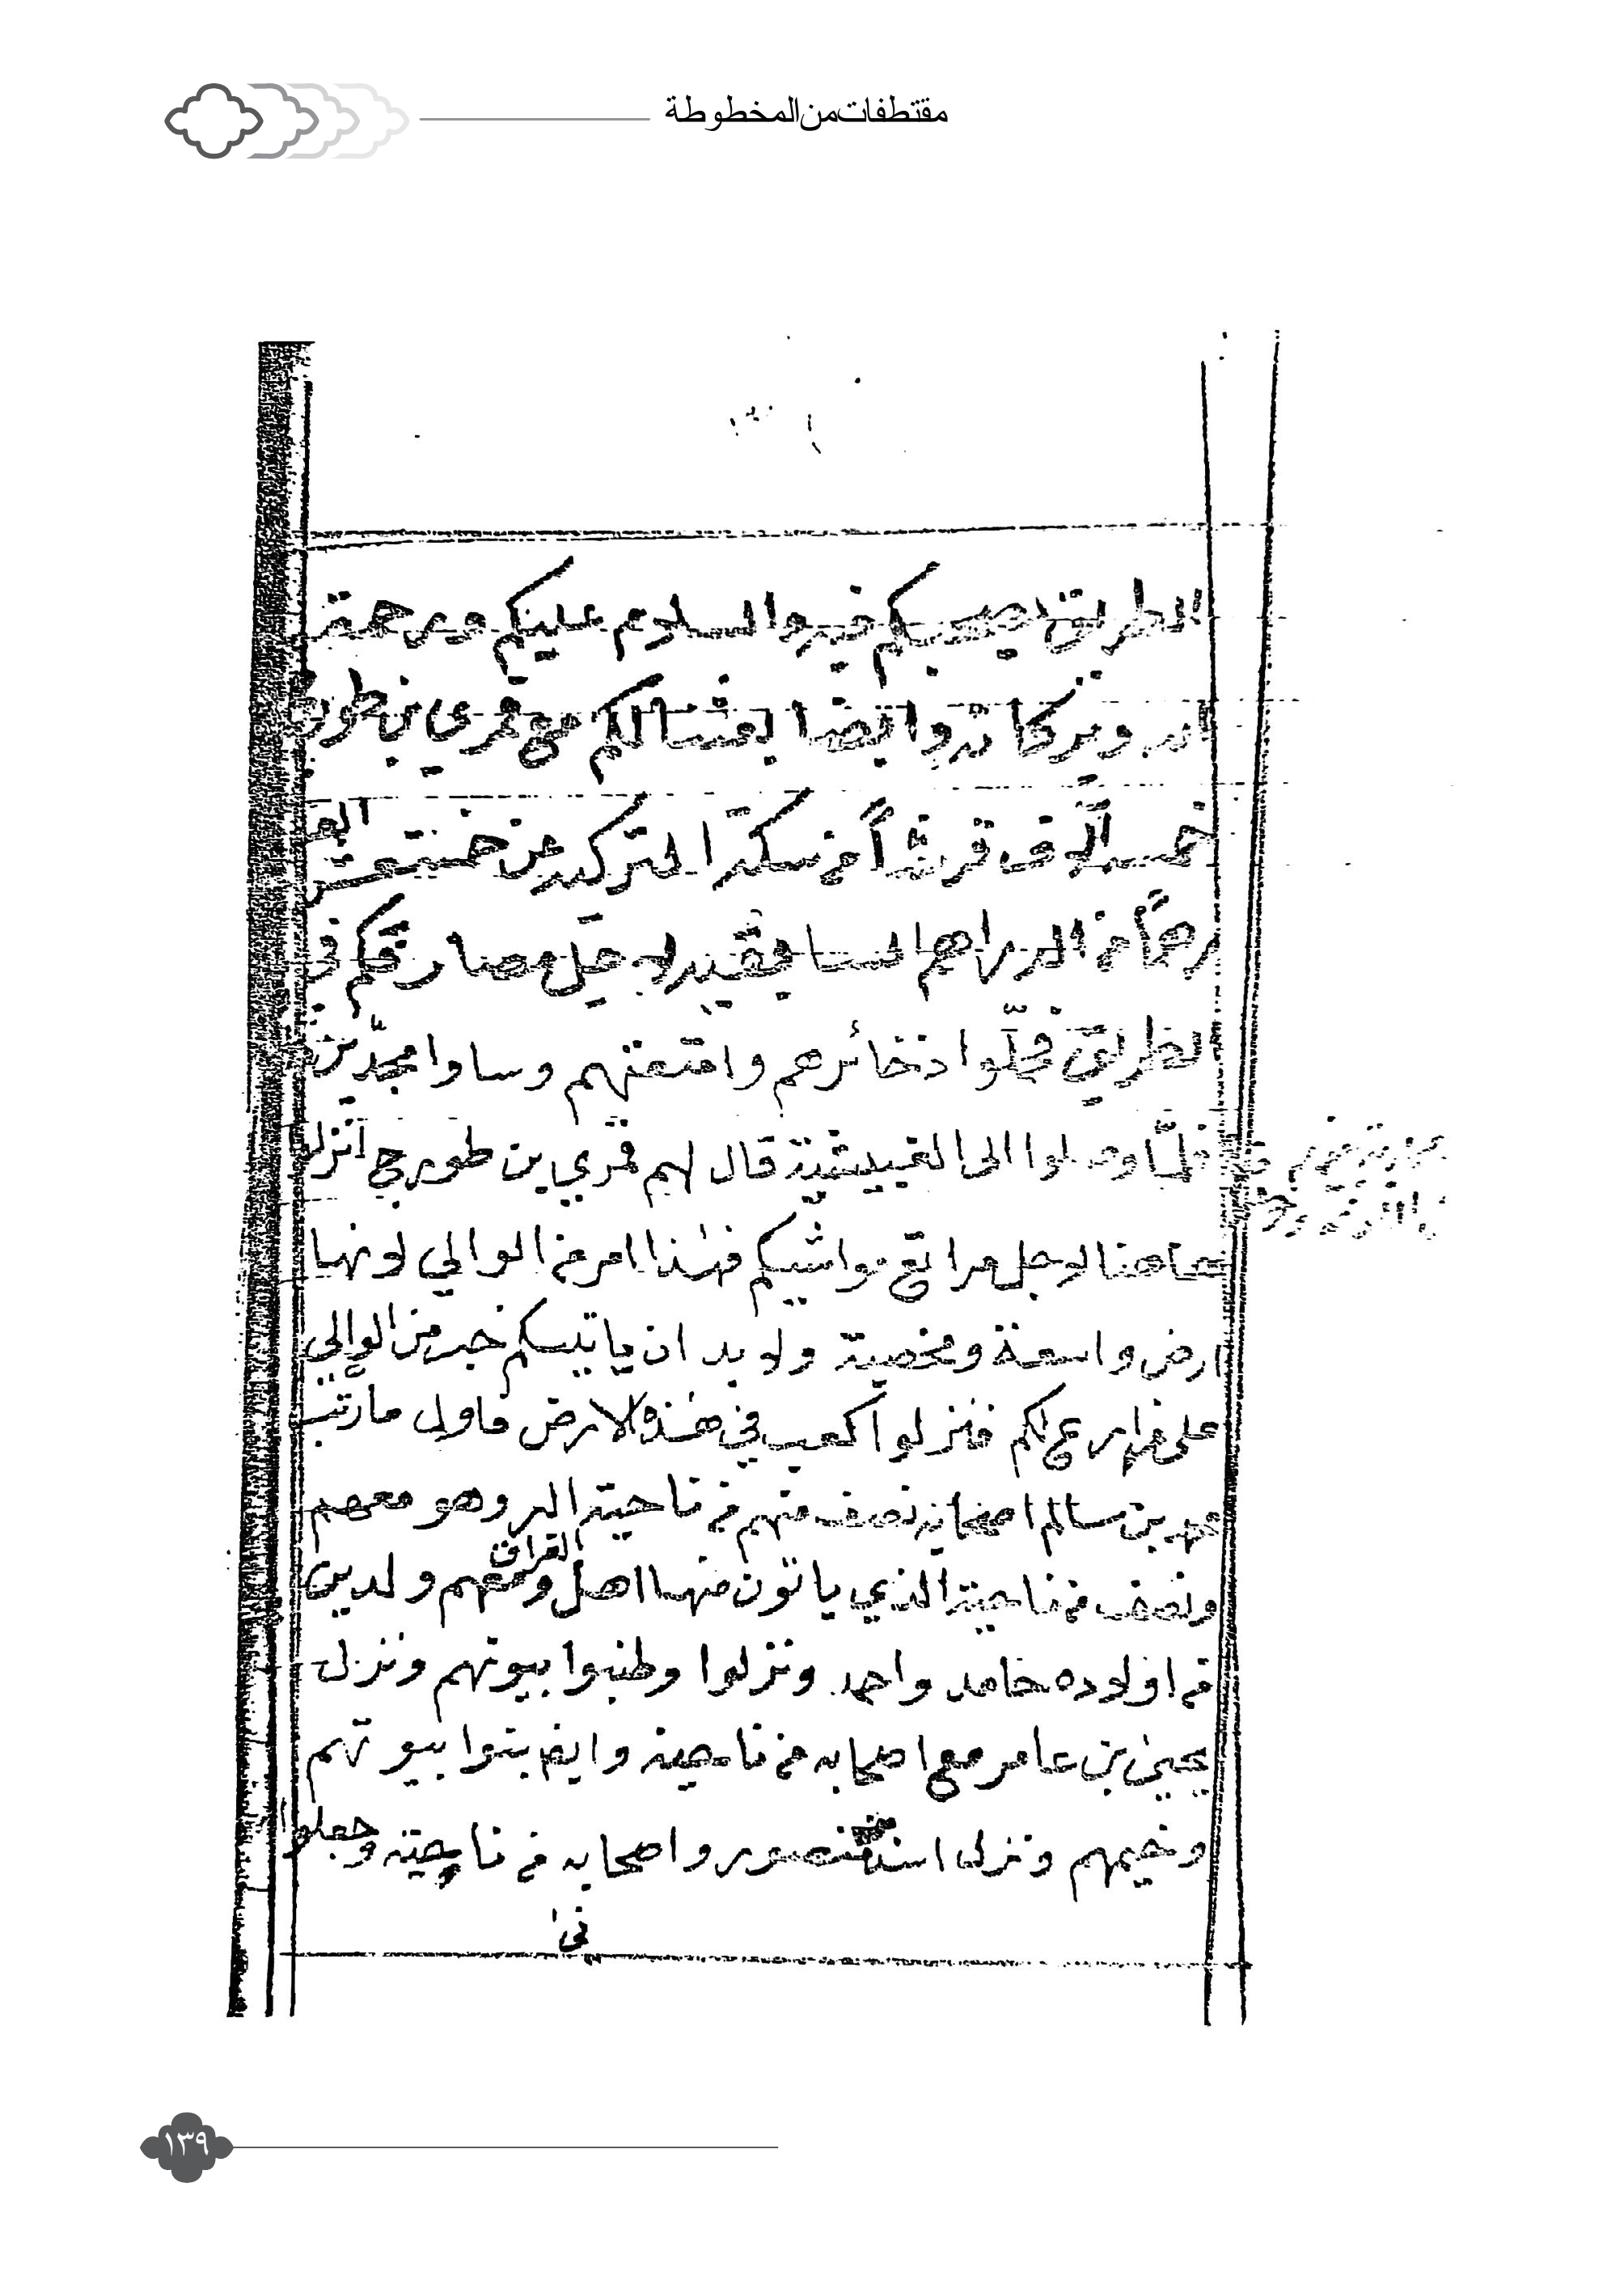 مقتطفات من المخطوطة
الطريق يصحبكم خير والسلام عليكم ورحمة
الله وبركاته وايضا بعثنا لكم مع قمري بن طورج
خمسة آلاف قرشاً من سكة التركيه عن خمسة عشر الف
درهماً من الدراهم السابقيه لاجل مصارفكم في
الطريق فحمّلوا ذخائرهم وامتعتهم وساروا مجدّين
فلمّا وصلوا الى الغبيشية قال لهم قمري بن طورج انزلوا
هاهنا لاجل مراتع مواشيكم فهذا امر من الوالي لانها
ارض واسعة ومخصبة ولا بد ان ياتيكم خبر من الوالي
على لكم فنزلوا كعب في هذه الارض فاول ما رتّب
محمد بن سالم اصحابه نصف منهم من ناحية البر وهو معهم
ونصف من ناحية الذي ياتون منها اهل العراق ومعهم ولدين
من اولاده حامد واحمد ونزلوا وطنبوا بيوتهم ونزل
يحيى بن عامر مع اصحابه من ناحية وايضا بنوا بيوتهم
وخيمهم ونزل منصور واصحابه من ناحية وجعلوا
في
١٣٩